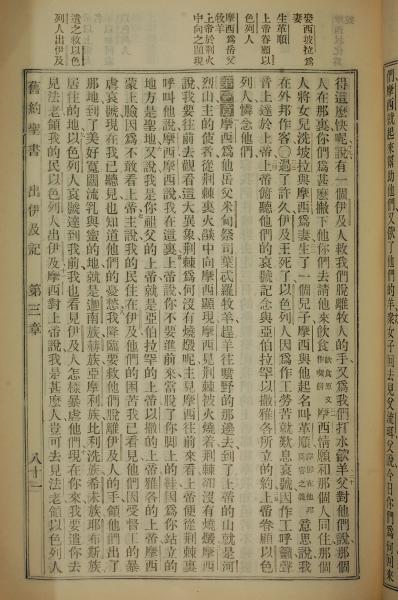 們摩西就起來幫助他們又飲了他們的羊衆女子回去見父流珥父說今日你們為何回來
娶西坡拉爲妻
生革順
上帝眷顧以色列人
摩西爲岳父牧羊
上帝於荆火中向之顯現
遣之救以色列人出伊及
得這麼快呢說有一個伊及人救我們脫離牧人的手又爲我們打水飲羊父對他們說那個
人在那裏你們爲甚麼撇下他你們去請他來飲食飲食原文作喫餅摩西情願和那個人同住那個
人將女兒洗坡拉與摩西爲妻生了一個兒子摩西與他起名叫革順意思說我
在外邦作客○過了許久伊及王死了以色列人因爲作工勞苦就歎息哀號因作工呼籲聲
音上達於上帝上帝俯聽他們的哀號記念與亞伯拉罕以撒雅各所立的約上帝眷顧以色
列人憐念他們
第三章摩西爲他岳父米甸祭司葉忒羅牧羊趕羊往曠野的那邊去到了上帝的山就是河
烈山主的使者從荆棘裏火燄中向摩西顯現摩西見荆棘被火燒着荆棘卻沒有燒燬摩西
說我要往前去觀看這大異象荆棘爲何沒有燒燬呢主見摩西往前來看上帝便從荆棘裏
呼叫他說摩西摩西說我在這裏上帝說你不要進前來當脫了你脚上的鞋因爲你站立的
地方是聖地又說我是你祖父的上帝就是亞伯拉罕的上帝以撒的上帝雅各的上帝摩西
蒙上臉因爲不敢看上帝主說我的民住在伊及他們的困苦我已看見他們因受督工的暴
虐哀號現在我已聽見也知道他們的憂愁我降臨要救他們脫離伊及人的手領他們出了
那地到了美好寬闊流乳與蜜的地就是迦南族赫族亞摩利族比利洗族希未族耶布斯族
居住的地以色列人哀號達到我前我也看見伊及人怎樣暴虐他們現在你來我要遣你去
見法老領我的民以色列人出伊及摩西對上帝說我是甚麼人豈可去見法老領以色列人
舊約聖書 出伊及記 第三章 八十一